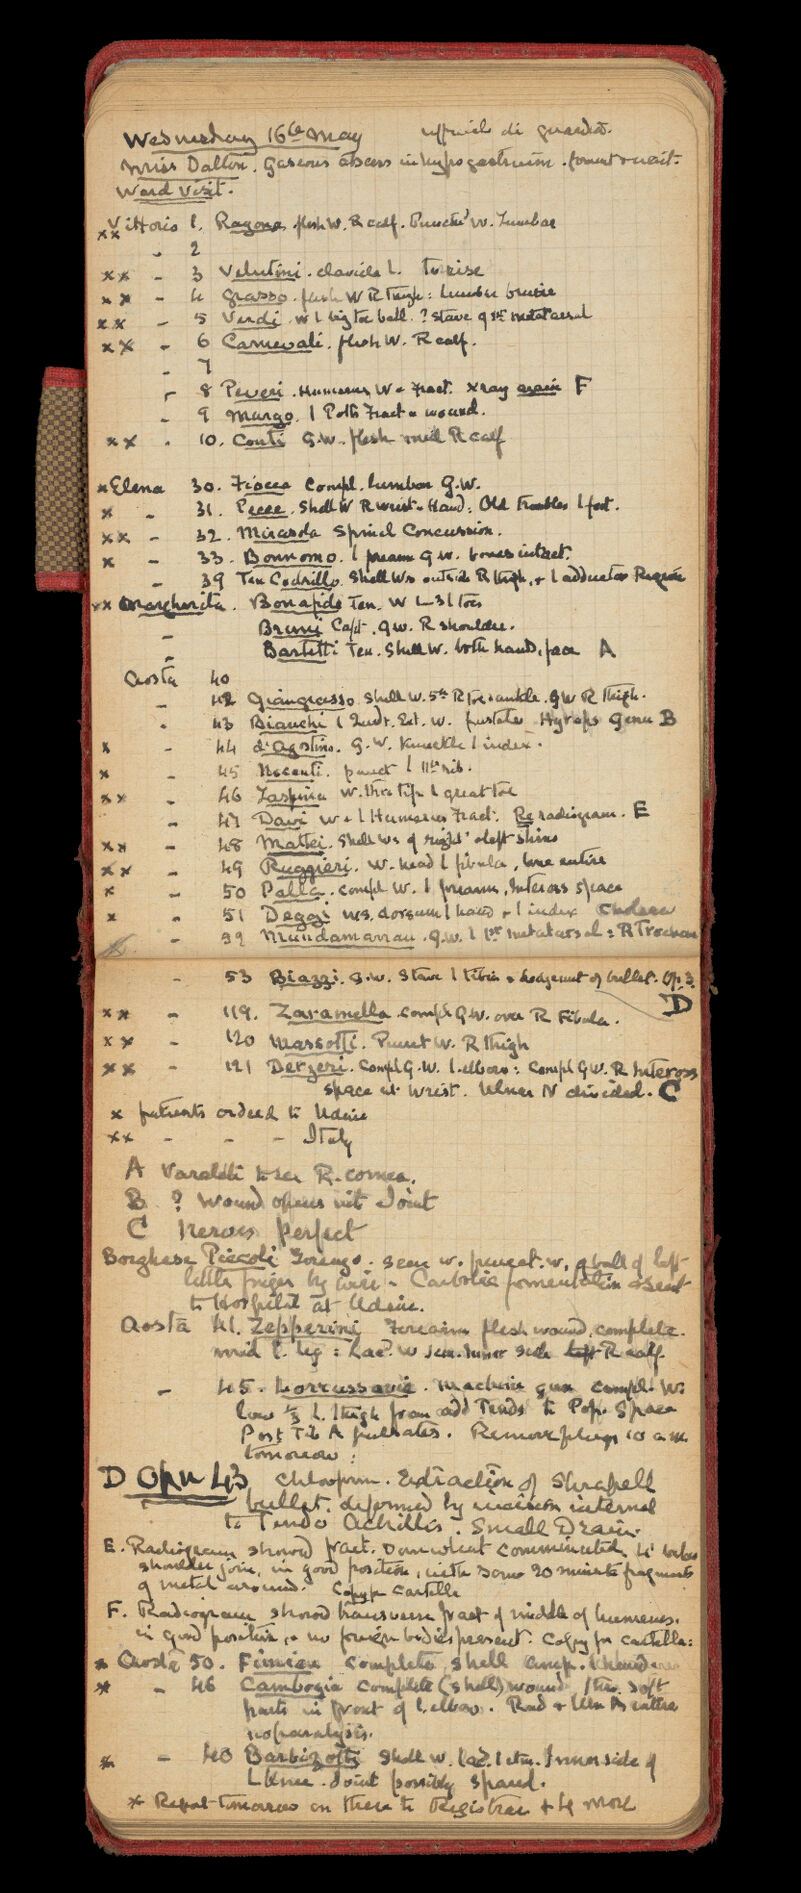 Wednesday 16th May ufficiale di guardia.
Miss Dalton. Gaseous abscess in hypogastrium. foment & wait.
Ward Visit.
xx Vittorio 1. Ragona flesh W. R calf. Punct'd W. Lumbar
- 2
xx - 3 Velutini. clavicle L. To rise
xx - 4 Grasso. flesh W R Thigh: lumbar bruise
xx - 5 Verdi. W l big toe ball. ? Stave of 1st metatarsal
xx - 6 Carnevali. flesh W. R calf.
- 7
- 8 Peveri. Humerus W & Fract. Xray again F
- 9 Margo. l Potts Fract & wound.
xx - 10. Conti G.W. flesh mid R calf
x Elena 30. Fiocca Compl. lumbar G.W.
x - 31. Pecce. Shell W R wrist & Hand: Old troubles l foot.
xx - 32. Mirasola Spinal Concussion.
x - 33. Bonnomo. l forearm G W. bones intact.
- 39 Ten Codrillo. Shell Ws outside R thigh, & l adductor Region
xx Margherita. Bonafide Ten. W L 3 l toes
- Bruni Capt. G.W. R shoulder.
- Bartetti Ten. Shell W. both hands, face A
Aosta 40
- 42 Giangrasso Shell W. 5th R toe & ankle. G W R thigh.
- 43 Bianchi l W. Hyrops Genu B
x - 44 d'Agostino. G.W. Knuckle l index.
x - 45 Nocenti. punct l 11th rib.
xx - 46 W. thro tip l great toe
- 47 Davi W & l Humerus Fract. Re radiogram. E
xx - 48 Mattei. Shell Ws of right & left shins
xx - 49 Ruggieri. W. head l fibula, bone entire
x - 50 Palla. compl W. l forearm, Inteross space
x - 51 Deggi Ws. dorsum l hand & l index
- 52 Mundamarrau. G.W. l 1st metatarsal: R Trochan
- 53 Biazzi. G.W. Stave l tibia & lodgement of bullet. Op. 3. D
xx - 119. Zaramella compl G W. over R Fibula.
xx - 120 Massotti. Punct W. R thigh
xx - 121 Derzeri. Compl G.W. l elbow: Compl G W. R Inteross
space at wrist. Ulnar N divided. C
x patients ordered to Udine
xx - - - Italy
A Varaldi to see R. cornea.
B ? Wound opens into Joint
C Nerves Perfect
Borghese Piccoli Lorenzo. seen w. punct. w. of ball of left
little finger by wire. Carbolic fomentation & sent
to Hospital at Udine.
Aosta 41. Zepperini Forearm flesh wound, complete.
mid l. leg: Lac'd W inner side R calf
- 45. Machine gun compl. W:
low 1/3 L. thigh from add Tends to Pop. Space
Post Tib A pulsates. Remove plugs 10 a.m.
tomorrow:
D Opn 43 chloroform. Extraction of Shrapnell
bullet. deformed by incision internal
to Tendo Achillis. Small Drain.
E. Radiogram showed fract. somewhat comminuted, 4" below
shoulder join, in good position, with some 20 minute fragments
of metal around. Copy for Cartella
F. Radiogram showed transverse fract of middle of humerus.
in good position, & no foreign bodies present: Copy for cartella:
x Aosta 50. complete, shell
x - 46 Cambogia complete (shell) wound, thro. soft
parts in front of l. elbow. Rad & Uln As entire
no paralysis.
x - 40 Barbizotti Shell W. Inner side of
L Knee. Joint possibly spared.
x Report tomorrow on these to Registrar & 4 more